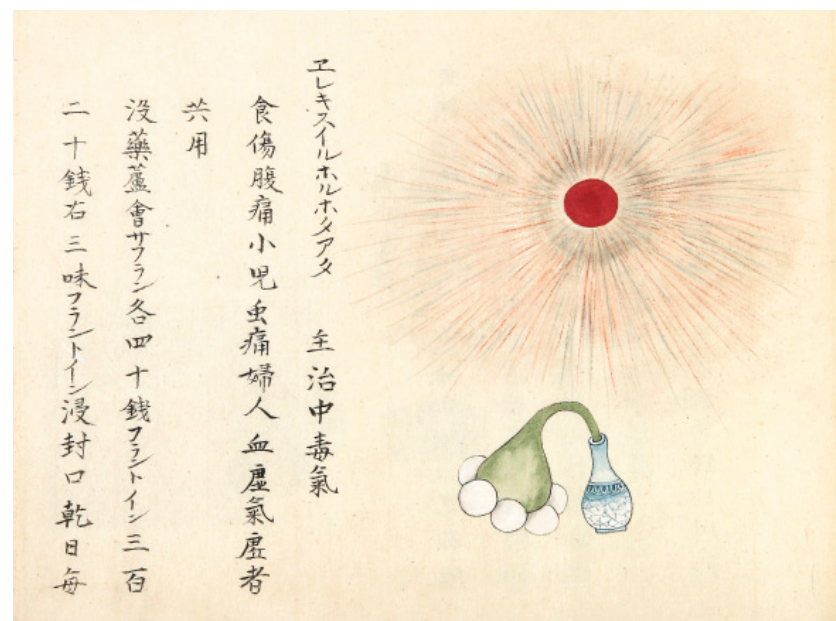 ヱレキスイルホルホタアタ　主治中毒氣
食傷腹痛小児虫痛婦人血虚氣虚者
共用
没藥蘆會サフラン各四十銭フラントイン三百
二十銭右三味フラントイン浸封口乾日毎